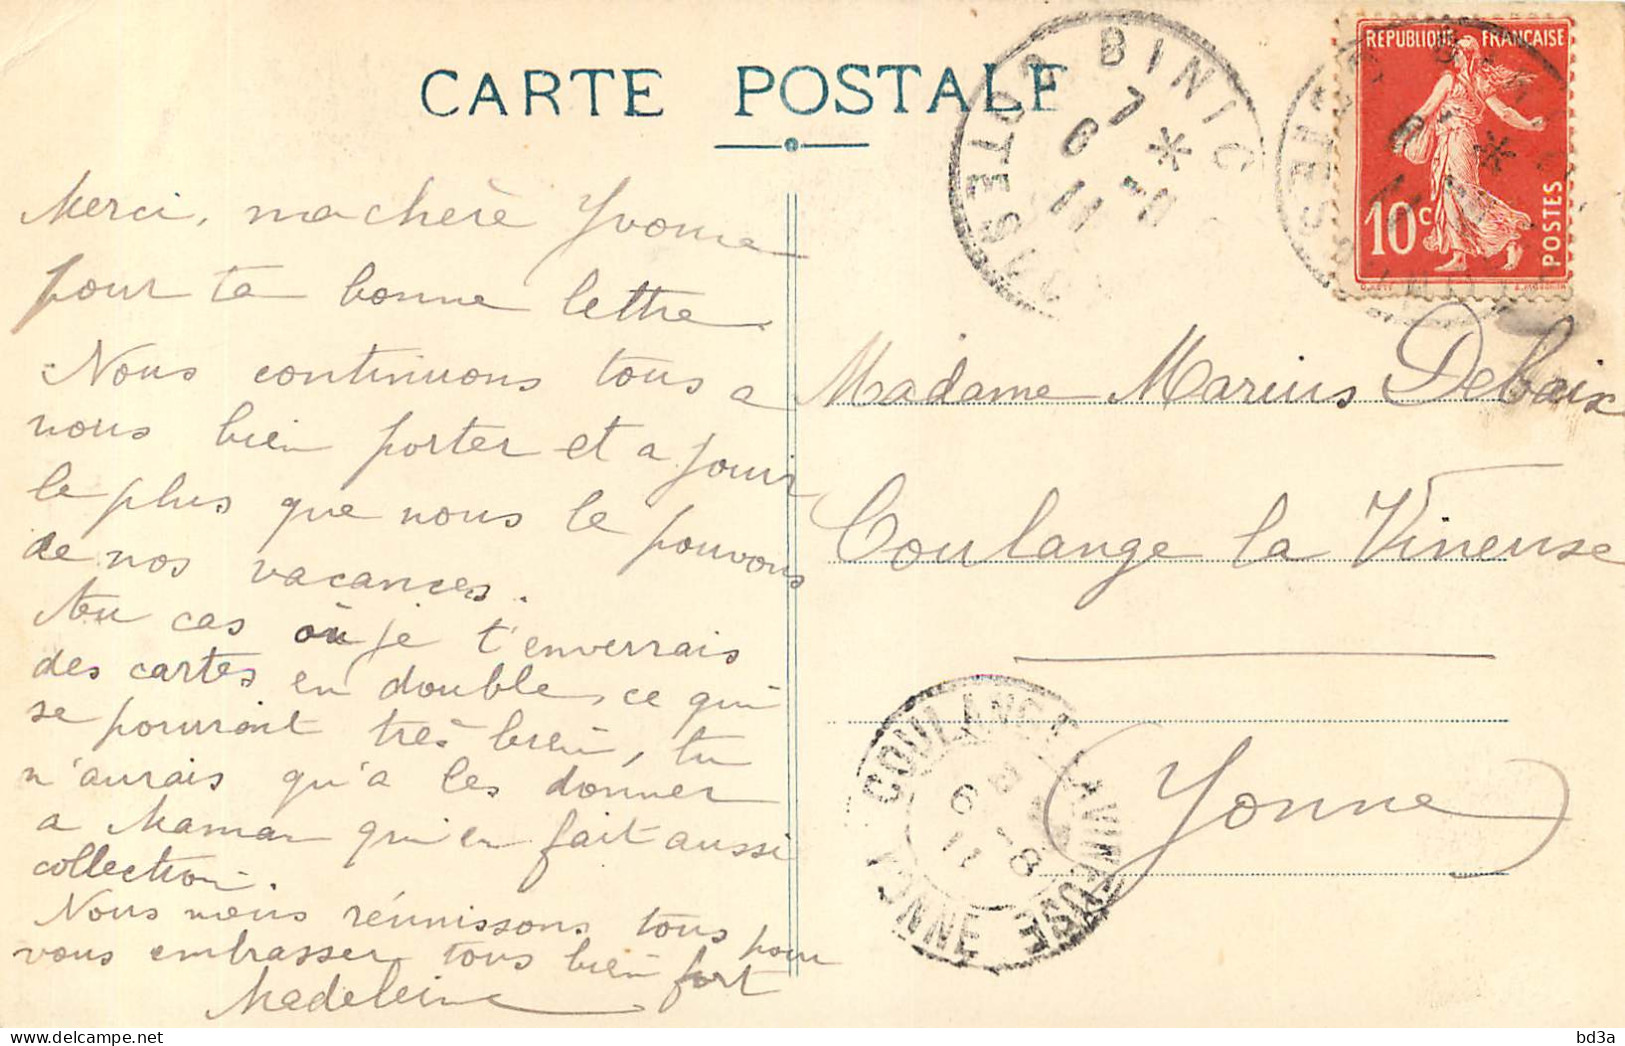 CARTE POSTALE
BINIC
CÔTES DU
7 *
6 -8
11
REPUBLIQUE FRANÇAISE
10c
POSTES
Merci, ma chère Yvonne
pour ta bonne lettre.
Nous continuons tous a
nous bien porter et a jouir
le plus que nous le pouvons
de nos vacances.
Au cas où je t'enverrais
des cartes en double, ce qui
se pourrait très bien, tu
n'aurais qu'a les donner
a Maman qui en fait aussi
collection.
Nous nous réunissons tous pour
vous embrasser tous bien fort
Madeleine
Madame Marius Debaix
Coulange la Vineuse
Yonne
COULANGES LA VINEUSE
6 -8
11
YONNE
bd3a